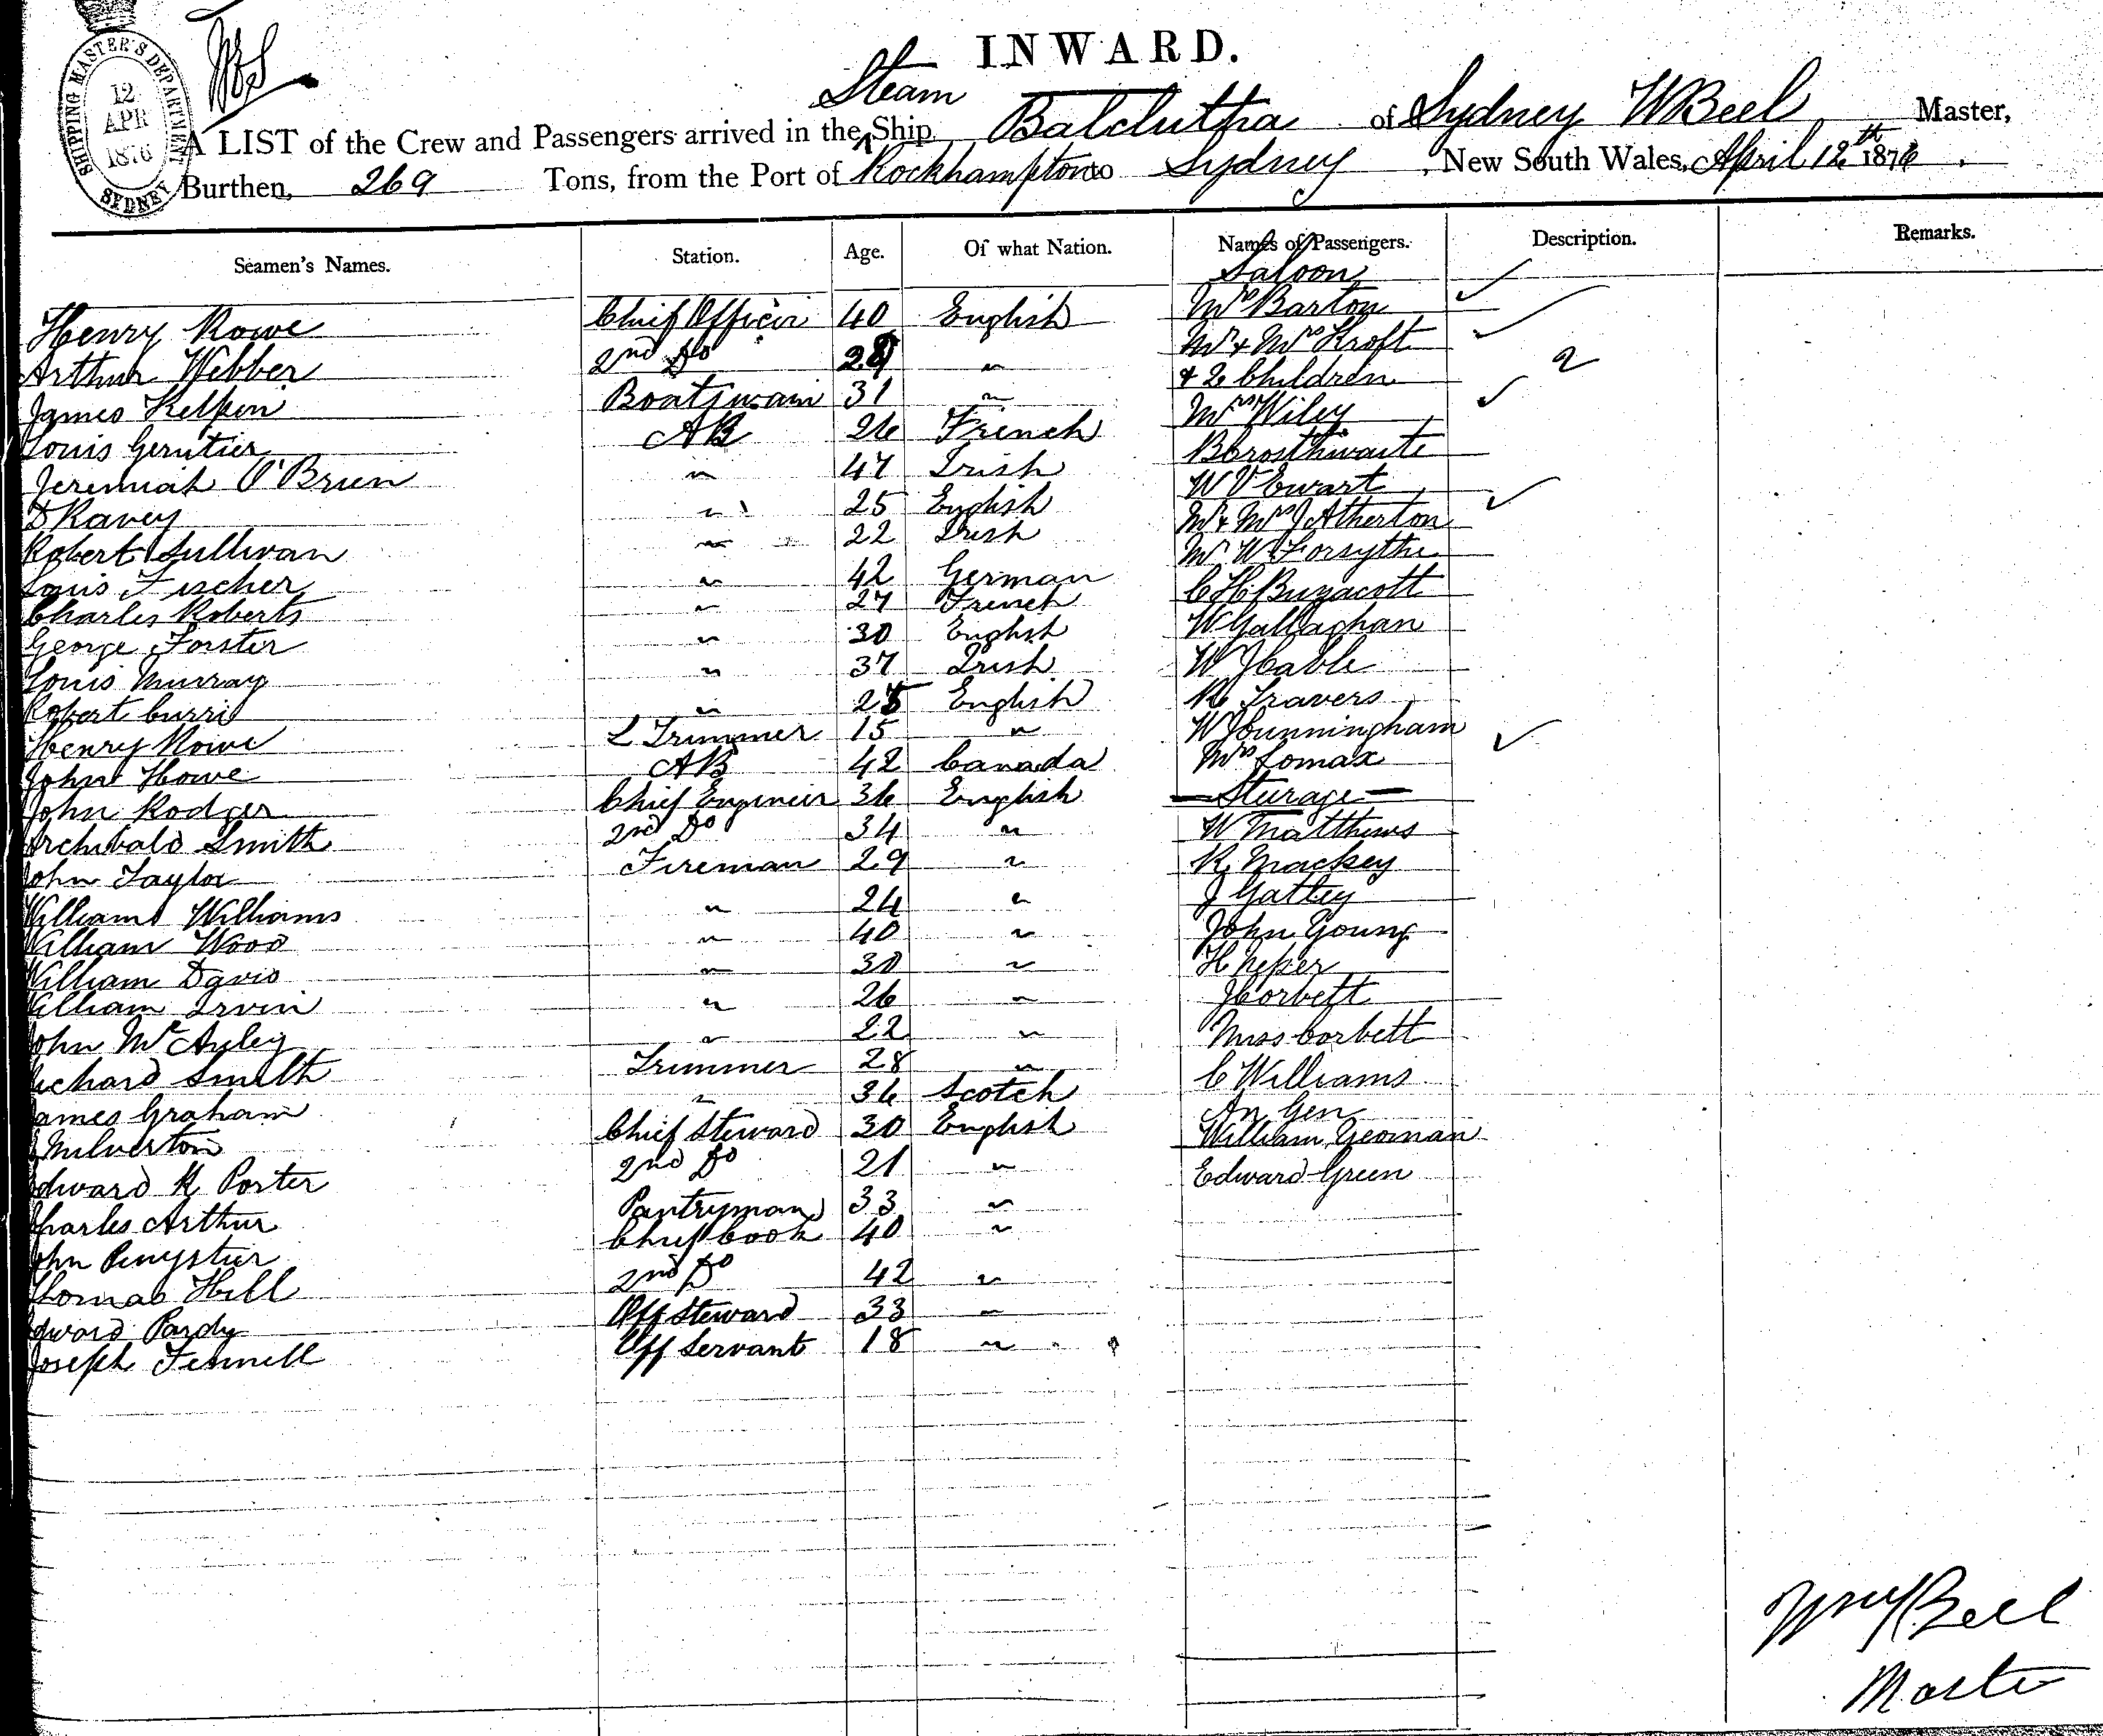 INWARD.
SHIPPING MASTER'S DEPARTMENT
12
APR
1876
SYDNEY
Steam
A LIST of the Crew and Passengers arrived in the Ship Balclutha of Sydney W Beel Master,
Burthen, 269 Tons, from the Port of Rockhampton to Sydney, New South Wales, April 12th 1876.
Seamen's Names. Station. Age. Of what Nation. Names of Passengers. Description. Remarks.
Saloon
Henry Rowe Chief Officer 40 English Mrs Barton
Arthur Webber 2nd Do 28 " Mr & Mrs Kroft
James Boatswain 31 " & 2 Children 2
Louis AB 26 French Mrs Wiley
Jeremiah O'Brien " 47 Irish B Crosthwaite
D Ravey " 25 English W V Ewart
Robert Sullivan " 22 Irish Mr & Mrs J Atherton
Louis Fischer " 42 German Mr W Forsythe
Charles Roberts " 27 French C H Buzacott
George Forster " 30 English W Gallaghan
Louis Murray " 37 Irish W J Cable
Robert Currie " 25 English R Travers
Henry Rowe L Trimmer 15 " W J Cunningham
John Howe AB 42 Canada Mrs Lomax
John Rodger Chief Engineer 36 English Sturage
Archibald Smith 2nd Do 34 " W Matthews
John Taylor Fireman 29 " R Mackey
Williams Williams " 24 " J Gattey
William Wood " 40 " John Young
William Davis " 30 " H
William Irvin " 26 " J Corbett
John McAuley " 22 " Miss Corbett
Richard Smith Trimmer 28 " C Williams
James Graham " 36 Scotch An Gen
Milverton Chief Steward 30 English William Yeoman
Edward R Porter 2nd Do 21 " Edward Green
Charles Arthur Pantryman 33 "
John Chief Cook 40 "
Thomas Hill 2nd Do 42 "
Edward Pardy Off Steward 33 "
Joseph Fennell Off Servant 18 "
Wm Beel
Master